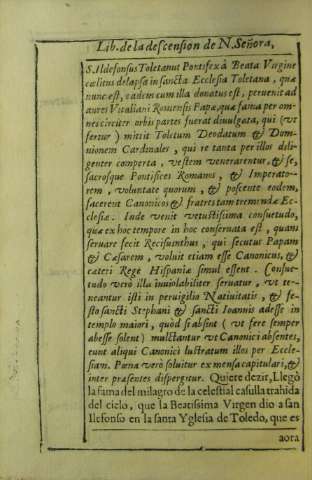 Lib. de la descension de N. Señora,
S. Ildefonsus Toletanus Pontifex à Beata Virgine
cælitus delapsa in sancta Ecclesia Toletana, quæ
nunc est, eadem cum illa donatus est, peruenit ad
aures Vitaliani Romensis Papæ, quæ fama per om-
nes circiter orbis partes fuerat diuulgata, qui (vt
fertur) mittit Toletum Deodatum & Dom-
nionem Cardinales, qui re tanta per illos dili-
genter comperta, vestem venerarentur, & se,
sacrosque Pontifices Romanus, & Imperato-
rem, voluntate quorum, & poscente eodem,
facerent Canonicos & fratres tam tremendæ Ec-
clesiæ. Inde venit vetustissima consuetudo,
quæ ex hoc tempore in hoc conseruata est, quam
seruare fecit Recisuinthus, qui secutus Papam
& Cæsarem, voluit etiam esse Canonicus, &
cæteri Rege Hispaniæ simul essent. Consue-
tudo verò illa inuiolabiliter seruatur, vt te-
neantur isti in peruigilio Natiuitatis, & fe-
sto sancti Stephani & sancti Ioannis adesse in
templo maiori, quòd si absint (vt fere semper
abesse solent) mulctantur vt Canonici absentes,
eunt aliqui Canonici lustratum illos per Eccle-
siam. Pœna verò soluitur ex mensa capitulari, &
inter præsentes dispergitur. Quiere dezir, Llegò
la fama del milagro de la celestial casulla trahida
del cielo, que la Beatissima Virgen dio a san
Ilefonso en la santa Yglesia de Toledo, que es
aora